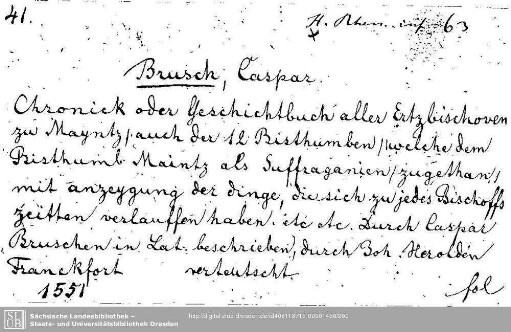 41.
H. Rhen. inf. 63
x
Brusch, Caspar.
Chronick oder Geschichtbuch aller Ertzbischoven
zu Mayntz/ auch der 12 Bisthumben/ welche dem
Bisthumb Maintz als Suffraganien/ zugethan/
mit anzeygung der dinge, die sich zu jedes Bischoffs
zeitten verlauffen haben. etc etc. Durch Caspar
Bruschen in Lat. beschrieben, durch Joh. Herolden
Franckfort verteutscht
1551 fol
Sächsische Landesbibliothek –
Staats- und Universitätsbibliothek Dresden